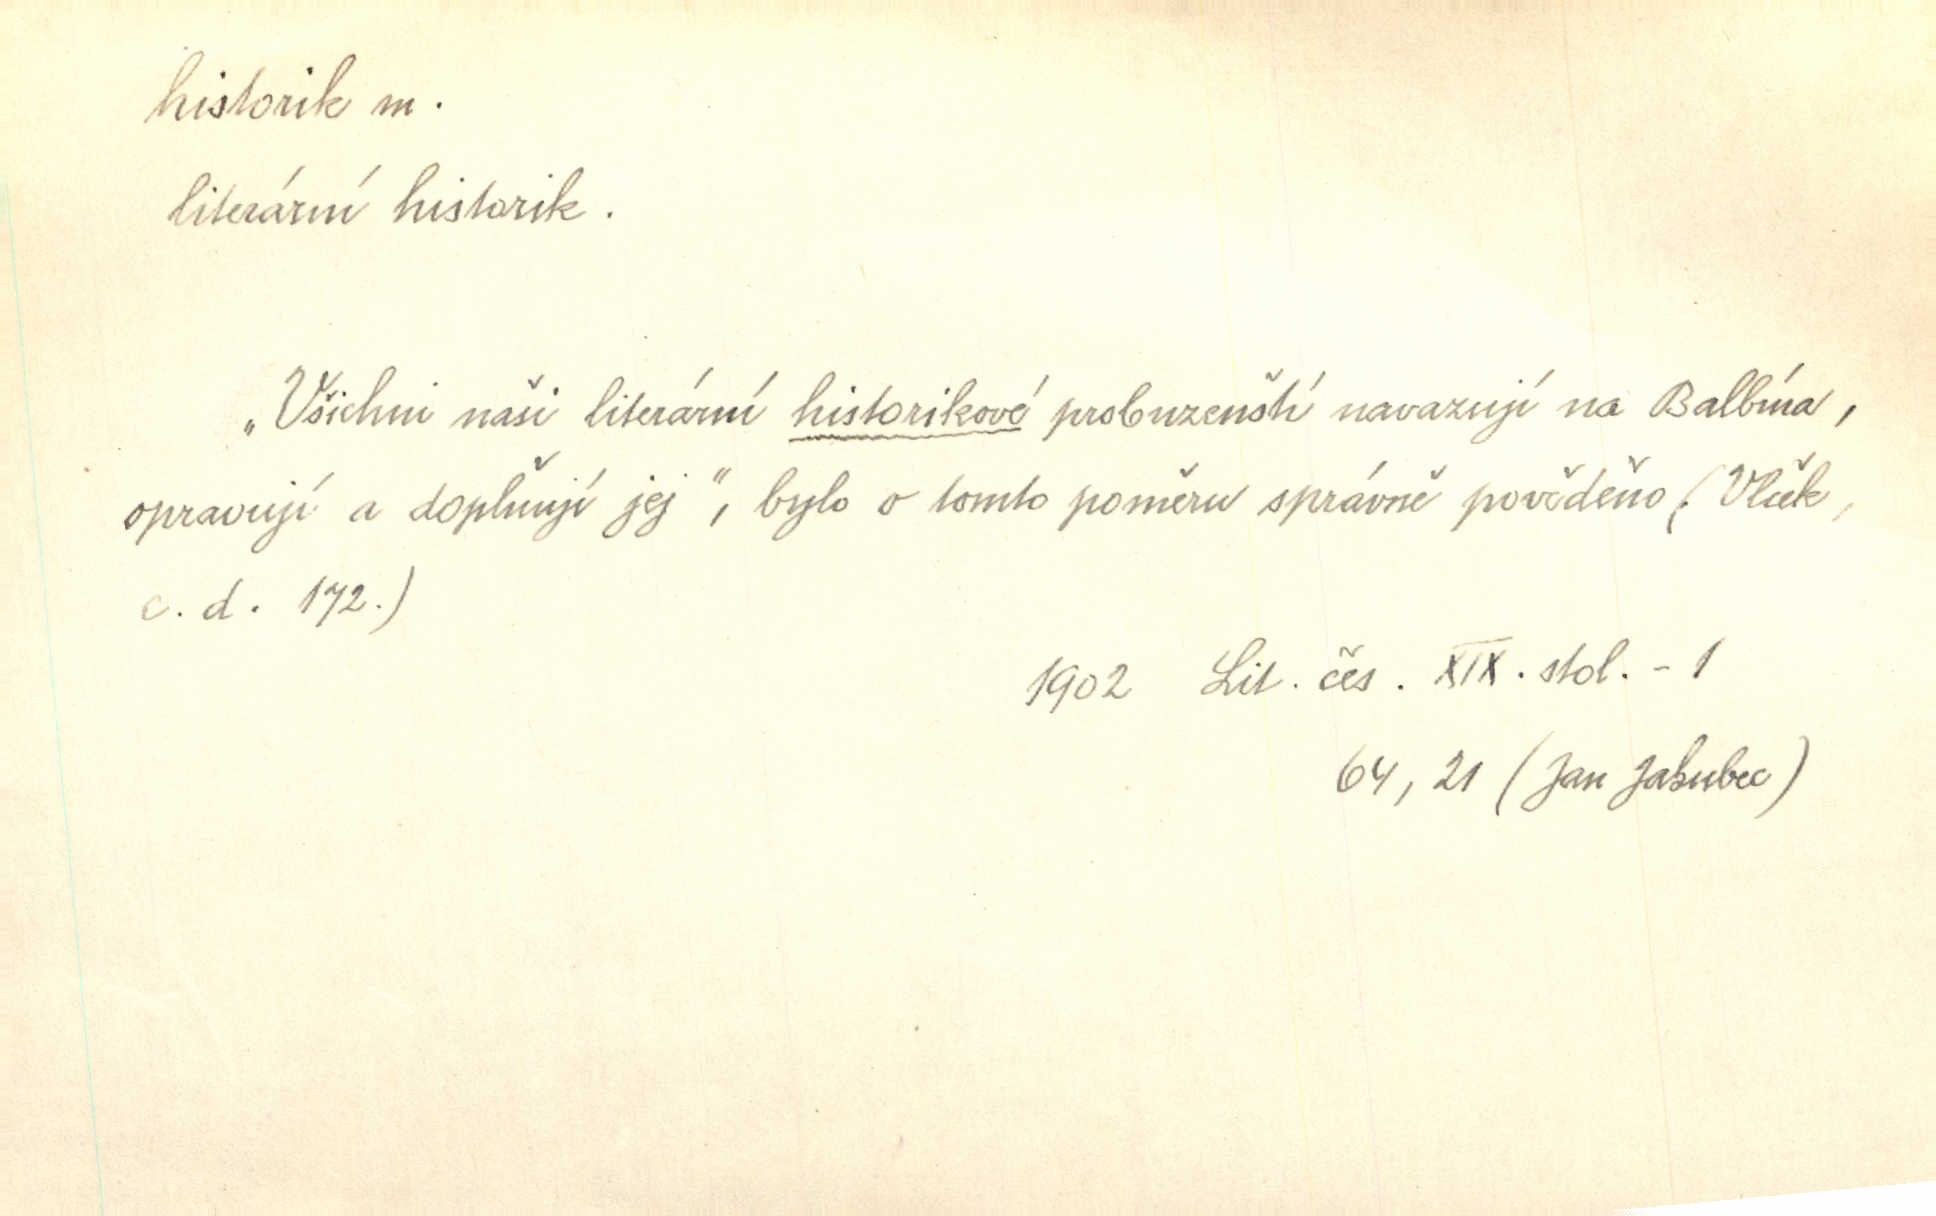 historik m.
literární historik.
„Všichni naši literární historikové probuzenští navazují na Balbína,
opravují a doplňují jej", bylo o tomto poměru správně pověděno (Vlček,
c. d. 172.)
1902 Lit. čes. XIX. stol. - 1
64, 21 (Jan Jakubec)